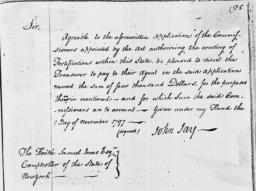 Sir,
Agreeable to the aforewritten Application of the Commis-
sioners appointed by the Act authorising the erecting of
Fortifications within this State, be pleased to direct the
Treasurer to pay to their Agent in the said Applications
named the sum of four thousand Dollars, for the purpose
therein mentioned – and for which Sum the said Com-
missioners are to account – Given under my Hand the
Day of November 1797 –
(signed) John Jay –
The Honble Samuel Jones Esq
Comptroller of the State of
Newyork –